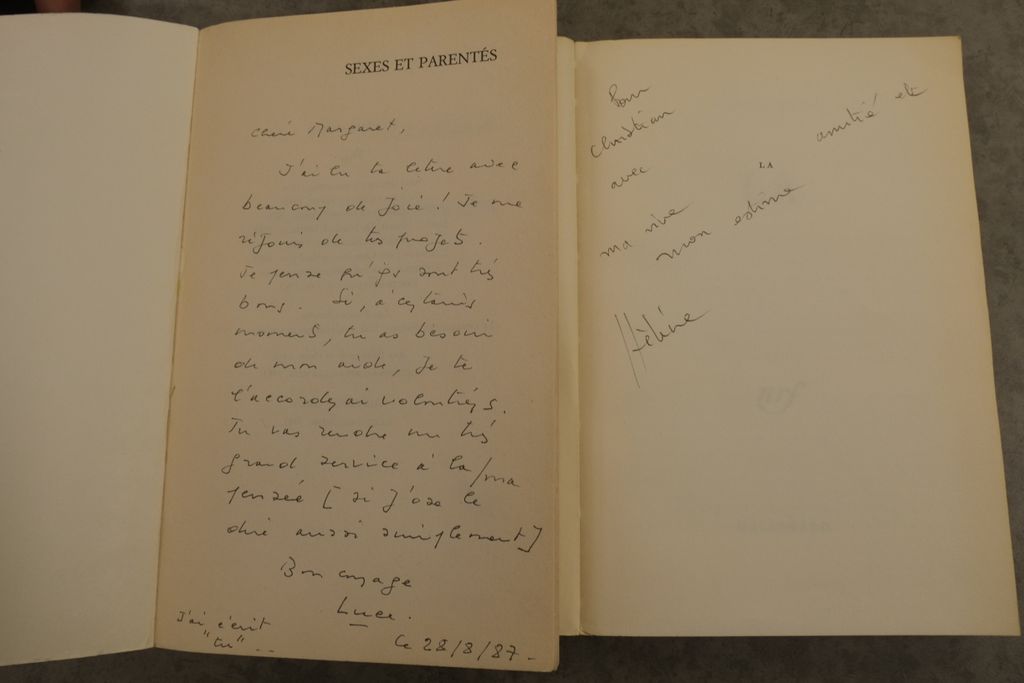 SEXES ET PARENTÉS
Chère Margaret,
J'ai lu ta lettre avec
beaucoup de joie ! Je me
réjouis de tes projets.
Je pense qu'ils sont très
bons. Si, à certains
moments, tu as besoin
de mon aide, je te
l'accorderai volontiers.
Tu vas rendre un très
grand service à la/ma
pensée [si j'ose le
dire aussi simplement]
Bon voyage
Luce.
J'ai écrit
"tu"..
Le 28/8/87.
Pour
Christian
avec
ma vive amitié et
mon estime
Hélène
LA
nrf